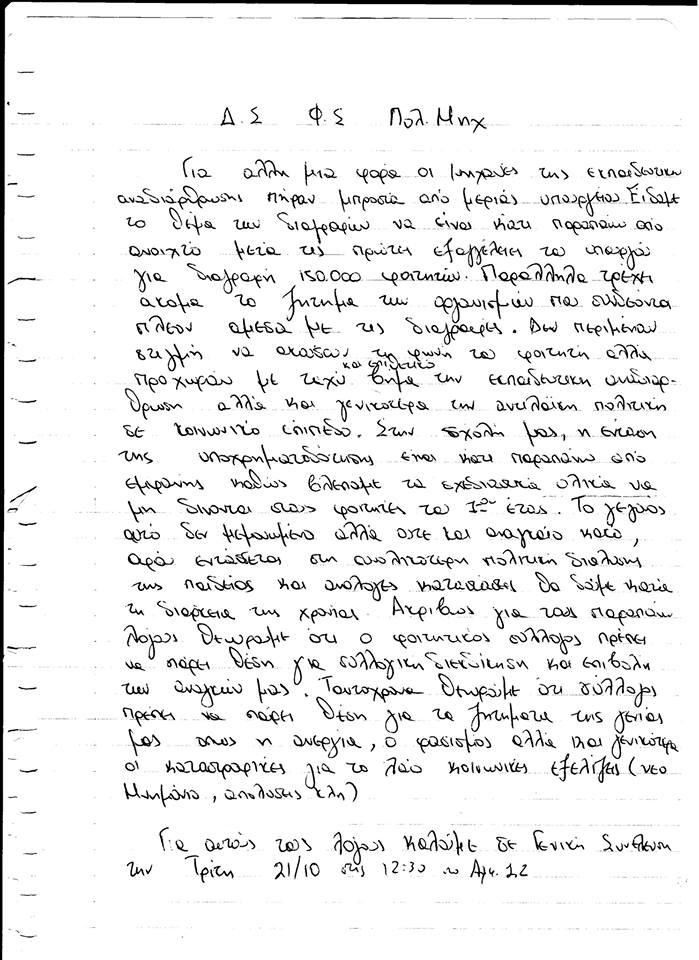 Δ.Σ Φ.Σ Πολ.Μηχ
Για αλλη μια φορα οι μηχανές της εκπαιδευτικη
αναδιάρθρωσης πήραν μπροστα από μεριάς υπουργειου. Είδαμε
το θέμα των διαγραφών να είναι κατι παραπάνω από
ανοιχτό μετα τις πρώτες εξαγγέλιες του υπουργού
για διαγραφή 150.000 φοιτητών. Παράλληλα τρέχει
ακομα το ζήτημα των οργανισμών που συνδέονται
πλέον αμεσα με τις διαγραφες. Δεν περιμεναν
στιγμή να ακούσουν τη φωνή του φοιτητη αλλά
και επιθετικό
προχωρούν με ταχύ βημα την εκπαιδευτικη αναδιαρ-
θρωση αλλά και γενικοτερα την αντιλαϊκη πολιτικη
σε κοινωνικο επιπεδο. Στην σχολη μας, η ενταση
της υποχρηματοδότησης ειναι κατι παραπάνω από
εμφανης καθώς βλεπουμε τα σχεδιαστικα υλικα να
μη δινονται στους φοιτητες του 1ου έτος. Το γεγονος
αυτό δεν μεμονωμένο αλλά ουτε και αναγκαιο κακο,
αφού εντάσσεται στη συνολικοτερη πολιτικη διαλυσης
της παιδείας και αναλογες καταστασεις θα δούμε κατα
τη διαρκεια της χρονιας. Ακριβως για τους παραπανω
λόγους θεωρουμε ότι ο φοιτητικος σύλλογος πρεπει
να παρει θέση για συλλογικη διεκδικηση και επιβολη
των αναγκών μας. Ταυτοχρονα θεωρούμε ότι σύλλογος
πρεπει να παρει θέση για τα ζητηματα της γενιας
μας οπως η ανεργια, ο φασισμος αλλα και γενικοτερα
οι καταστροφικες για το λαο κοινωνικες εξελιξεις (νεο
Μνημόνιο, απολυσεις κλπ)
Για αυτούς τους λογους καλούμε σε Γενικη Συνελευση
την Τριτη 21/10 στις 12:30 στο Αμφ. 12